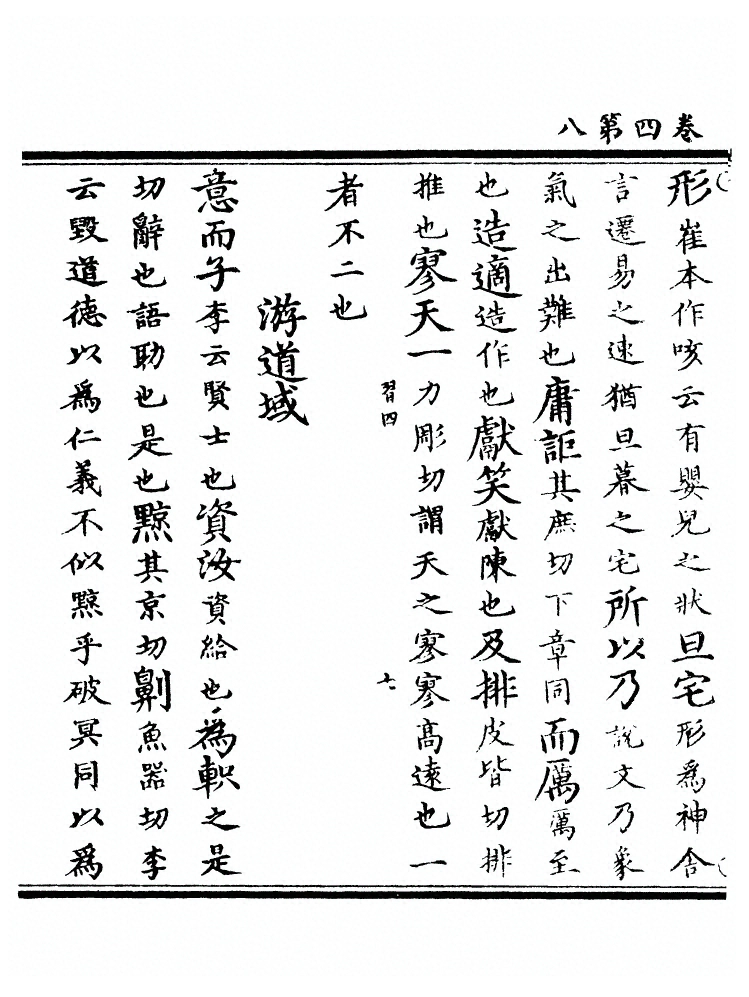 八第四卷
形崔本作咳云有嬰兒之狀旦宅形為神舍
言遷易之速猶旦暮之宅所以乃說文乃象
氣之出難也庸詎其庶切下章同而厲厲至
也造適造作也獻笑獻陳也及排皮皆切排
推也寥天一力彫切謂天之寥寥高遠也一
習四
七
者不二也
游道域
意而子李云賢士也資汝資給也為軹之是
切辭也語助也是也黥其京切劓魚器切李
云毀道德以為仁義不似黥乎破冥同以為